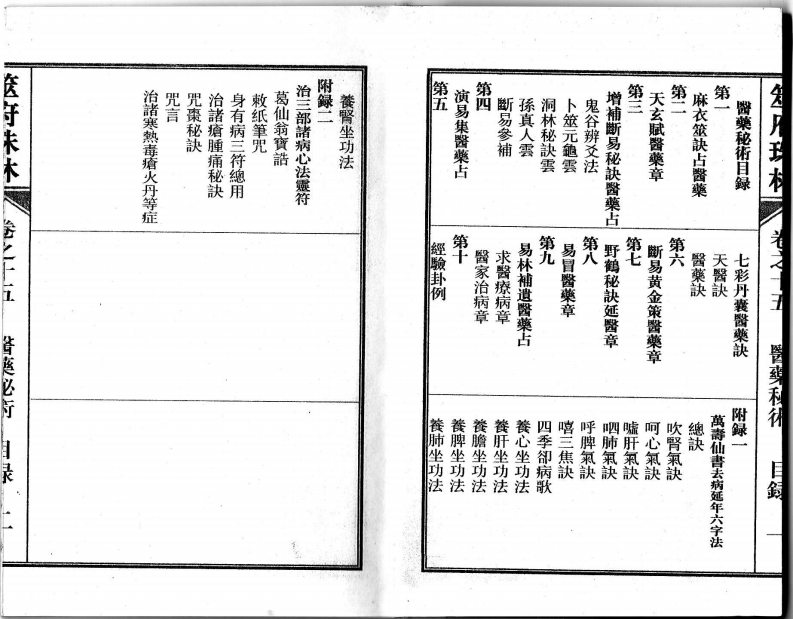 筮府珠林 卷之十五 醫藥秘術 目錄 一
醫藥秘術目錄
第一
麻衣筮訣占醫藥
第二
天玄賦醫藥章
第三
增補斷易秘訣醫藥占
鬼谷辨爻法
卜筮元龜雲
洞林秘訣雲
孫真人雲
斷易參補
第四
演易集醫藥占
第五
七彩丹囊醫藥訣
天醫訣
醫藥訣
第六
斷易黄金策醫藥章
第七
野鶴秘訣延醫章
第八
易冒醫藥章
第九
易林補遺醫藥占
求醫療病章
醫家治病章
第十
經驗卦例
附録一
萬壽仙書去病延年六字法
總訣
吹腎氣訣
呵心氣訣
噓肝氣訣
呬肺氣訣
呼脾氣訣
嘻三焦訣
四季卻病歌
養心坐功法
養肝坐功法
養膽坐功法
養脾坐功法
養肺坐功法
養腎坐功法
附録二
治三部諸病心法靈符
葛仙翁寶誥
敕纸筆咒
身有病三符總用
治諸瘡腫痛秘訣
咒棗秘訣
咒言
治諸寒熱毒瘡火丹等症
筮府珠林 卷之十五 醫藥秘術 目録 二